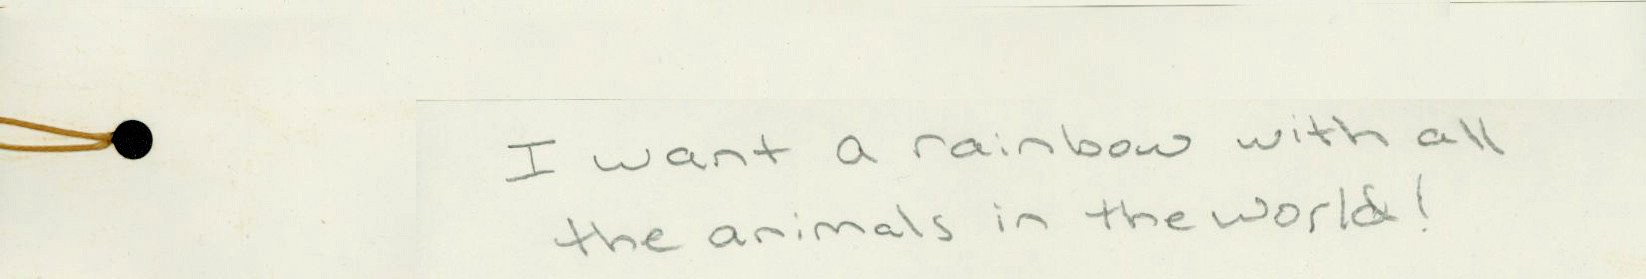 I want a rainbow with all
the animals in the world!